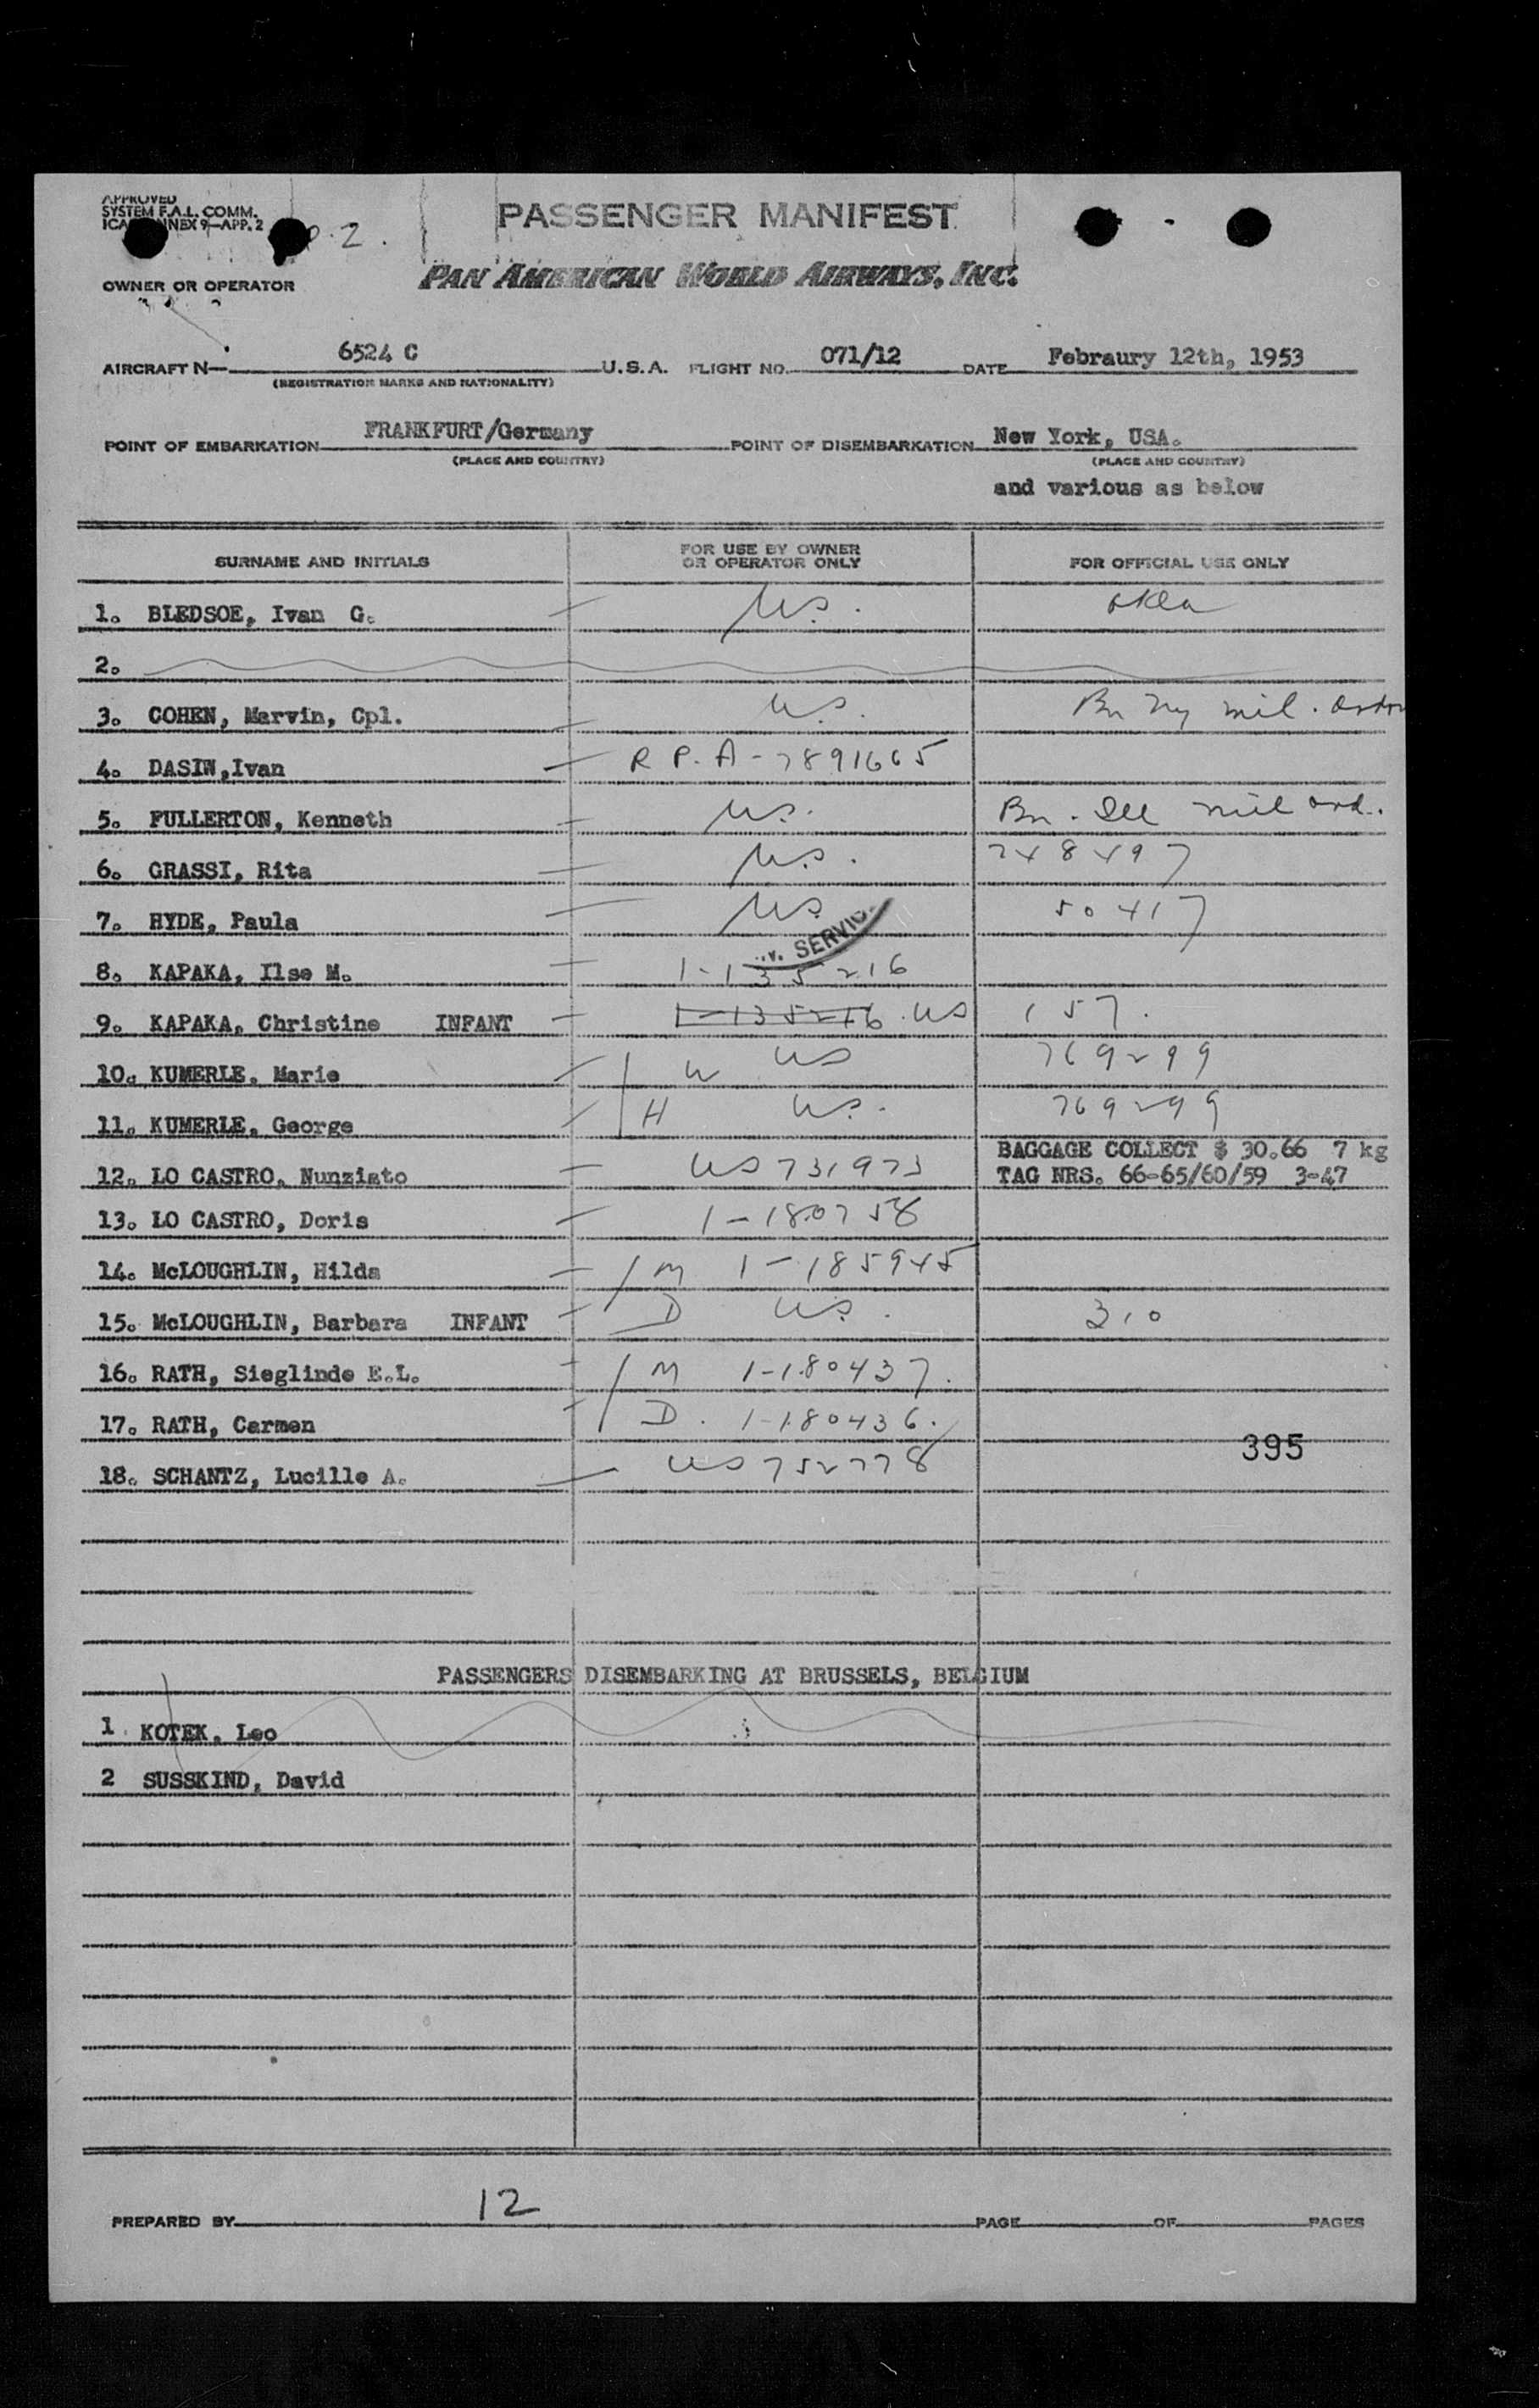 APPROVED
SYSTEM F.A.L. COMM.
ICA NNEX 9-APP. 2
P. 2.
PASSENGER MANIFEST
OWNER OR OPERATOR
PAN AMERICAN WORLD AIRWAYS, INC.
AIRCRAFT N- 6524 C U.S.A. FLIGHT NO. 071/12 DATE Febraury 12th, 1953
(REGISTRATION MARKS AND NATIONALITY)
POINT OF EMBARKATION FRANKFURT/Germany POINT OF DISEMBARKATION New York, USA.
(PLACE AND COUNTRY) (PLACE AND COUNTRY)
and various as below
SURNAME AND INITIALS FOR USE BY OWNER OR OPERATOR ONLY FOR OFFICIAL USE ONLY
1. BLEDSOE, Ivan G. U.S. Okla
2.
3. COHEN, Marvin, Cpl. U.S. Bn Ny mil. orders
4. DASIW,Ivan R P. A-7891665
5. FULLERTON, Kenneth U.S. Bn. Ill mil ord.
6. GRASSI, Rita U.S. 748497
7. HYDE, Paula U.S. 50417
SERVIC
8. KAPAKA, Ilse M. 1-135216
9. KAPAKA, Christine INFANT 1-135216 . US 157.
10. KUMERLE, Marie W US 769299
11. KUMERLE, George H U.S. 769299
12. LO CASTRO, Nunziato US 731973 BAGGAGE COLLECT $ 30.66 7 kg
TAG NRS. 66-65/60/59 3-47
13. LO CASTRO, Doris 1-180758
14. McLOUGHLIN, Hilda M 1-185945
15. McLOUGHLIN, Barbara INFANT D U.S. 310
16. RATH, Sieglinde E.L. M 1-180437.
17. RATH, Carmen D. 1-180436.
395
18. SCHANTZ, Lucille A. US 752778
PASSENGERS DISEMBARKING AT BRUSSELS, BELGIUM
1 KOTEK, Leo
2 SUSSKIND, David
PREPARED BY 12 PAGE OF PAGES